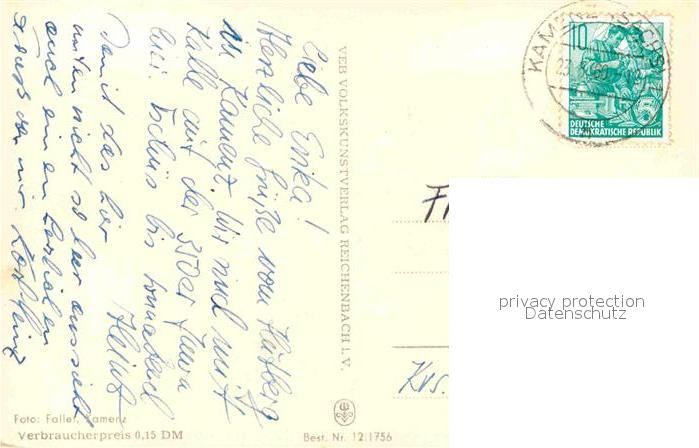 Liebe Erika!
Herzliche Grüße vom Hutberg
in Kamenz. Wir sind mit
Kalle auf der 350er Jawa
hier. Tschüs bis
Heinz
Damit das hier
unten nicht so leer aussieht
auch einen herzlichen
Gruß von mir.
VEB VOLKSKUNSTVERLAG REICHENBACH i. V.
KAMENZ (SACHS)
10
DEUTSCHE
DEMOKRATISCHE REPUBLIK
5
Krs.
privacy protection
Datenschutz
Foto: Faller, Kamenz
Verbraucherpreis 0,15 DM
Best. Nr. 12/1756